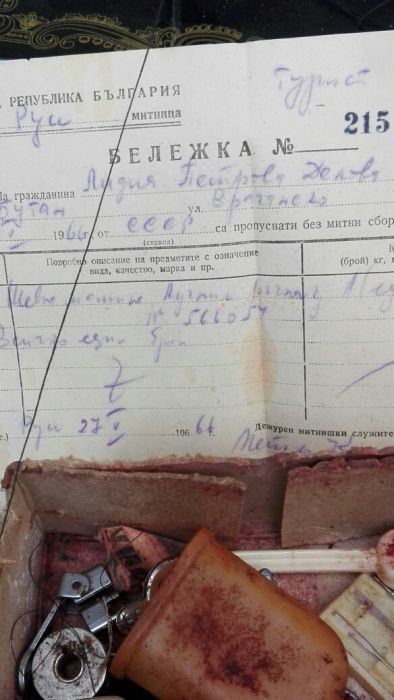 А РЕПУБЛИКА БЪЛГАРИЯ
Турист
Рус митница
215
БЕЛЕЖКА №
На гражданина Лидия Петрова
Бутан ул. Врачанско
V 1966 г. от СССР са пропуснати без митни сбор
(страна)
Подробно описание на предметите с означение
вида, качество, марка и пр.
(брой) кг, м
Шевна машина ръчна
№ 566054
Всичко един брой
Рус 27 V 1966 г.
Дежурен митнишки служите